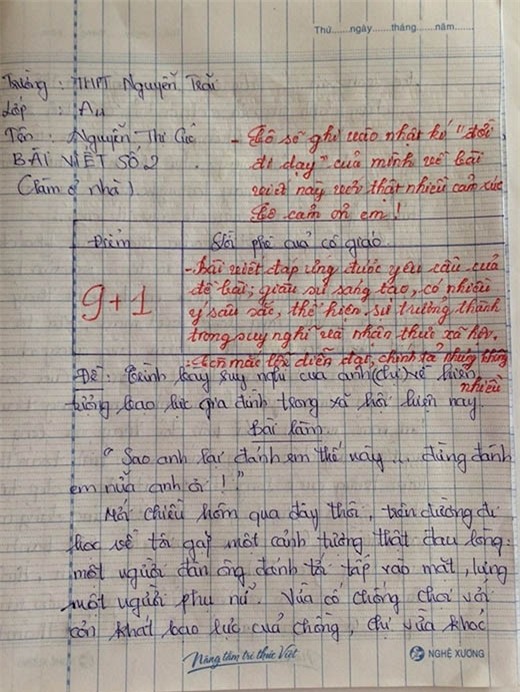 Thứ......ngày......tháng......năm......
Trường : THPT Nguyễn Trãi
Lớp : A4
Tên : Nguyễn Thị Cúc
BÀI VIẾT SỐ 2
(Làm ở nhà)
- Cô sẽ ghi vào nhật kí "đời
đi dạy" của mình về bài
viết này với thật nhiều cảm xúc
Cô cảm ơn em !
Điểm
Lời phê của cô giáo
9+1
- Bài viết đáp ứng được yêu cầu của
đề bài, giàu sự sáng tạo, có nhiều
ý sâu sắc, thể hiện sự trưởng thành
trong suy nghĩ và nhận thức xã hội.
- Còn mắc lỗi diễn đạt, chính tả nhưng không
nhiều
Đề: Trình bày suy nghĩ của anh (chị) về hiện
tượng bạo lực gia đình trong xã hội hiện nay
Bài làm
" Sao anh lại đánh em thế này ... đừng đánh
em nữa anh ơi ! "
Mới chiều hôm qua đây thôi, trên đường đi
học về tôi gặp một cảnh tượng thật đau lòng:
một người đàn ông đánh tới tấp vào mặt, lưng
một người phụ nữ. Vừa cố chống chọi với
cơn khát bạo lực của chồng, chị vừa khóc
Nâng tầm tri thức Việt
NGHỆ XƯƠNG